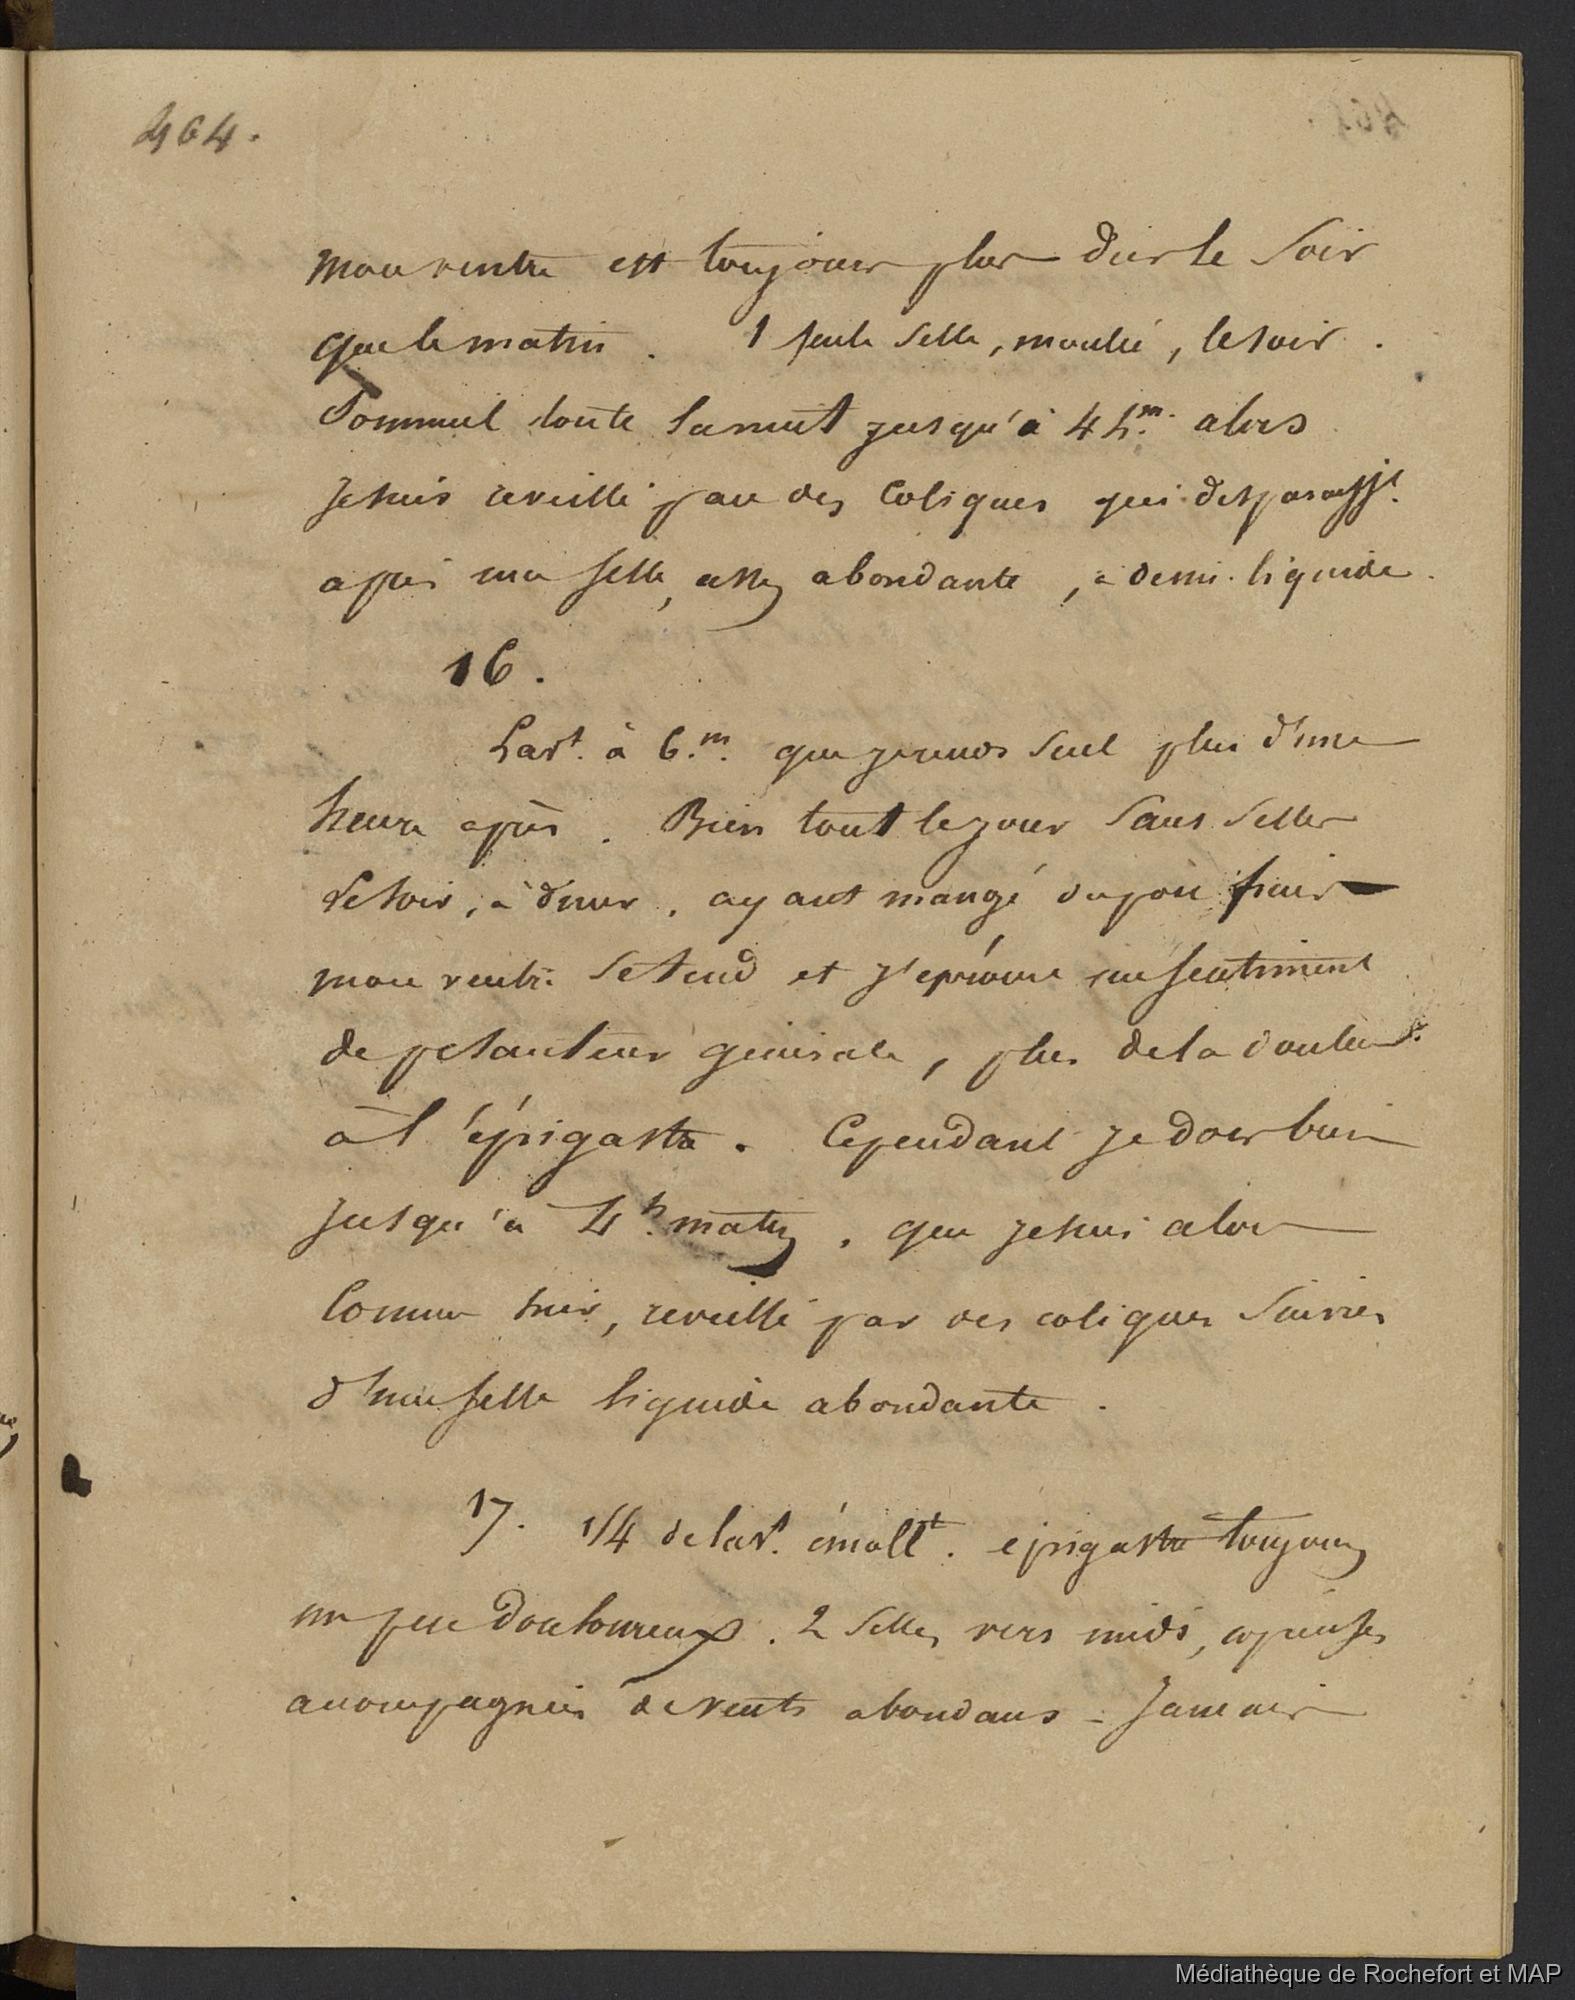 464.
mon ventre est toujours plus dur le soir
que le matin. 1 seule selle, moulée, le soir.
Sommeil toute la nuit jusqu'à 4 h. m. alors
je suis reveillé par des coliques qui disparaisst.
après une selle, assez abondante, à demi-liquide.
16.
Lavt. à 6. m. que je rends seul plus d'une
heure après. Bien tout le jour sans selles
Le soir, à dîner, ayant mangé du
mon ventre se tend et j'éprouve un sentiment
de pesanteur générale, plus de la douleur
à l'épigastre. Cependant je dors bien
jusqu'à 4 h. matin, que je suis alors
comme hier, reveillé par des coliques suivies
d'une selle liquide abondante.
17. 1/4 de lavt. émollt. épigastre toujours
un peu douloureux. 2 selles vers midi, copieuses
accompagnées de vents abondans - Jamais
Médiathèque de Rochefort et MAP